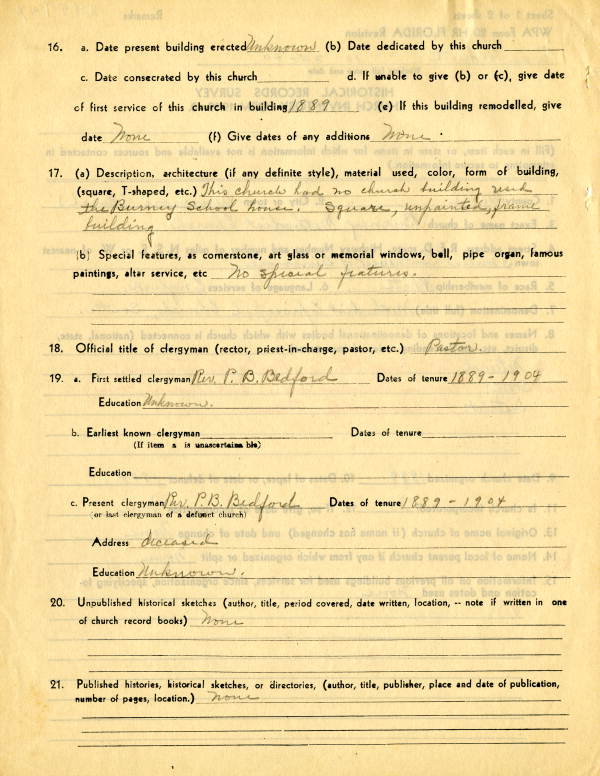 16. a. Date present building erected Unknown (b) Date dedicated by this church
c. Date consecrated by this church d. If unable to give (b) or (c), give date
of first service of this church in building 1889 (e) If this building remodelled, give
date None (f) Give dates of any additions None.
17. (a) Description, architecture (if any definite style), material used, color, form of building,
(square, T-shaped, etc.) This church had no church building used
the Burney School house. Square, unpainted, frame
building
(b) Special features, as cornerstone, art glass or memorial windows, bell, pipe organ, famous
paintings, altar service, etc No special features.
18. Official title of clergyman (rector, priest-in-charge, pastor, etc.) Pastor.
19. a. First settled clergyman Rev. P. B. Bedford Dates of tenure 1889-1904
Education Unknown.
b. Earliest known clergyman Dates of tenure
(If item a is unascertainable)
Education
c. Present clergyman Rev. P.B. Bedford Dates of tenure 1889-1904
(or last clergyman of a defunct church)
Address deceased
Education Unknown.
20. Unpublished historical sketches (author, title, period covered, date written, location, -- note if written in one
of church record books) None
21. Published histories, historical sketches, or directories, (author, title, publisher, place and date of publication,
number of pages, location.) None